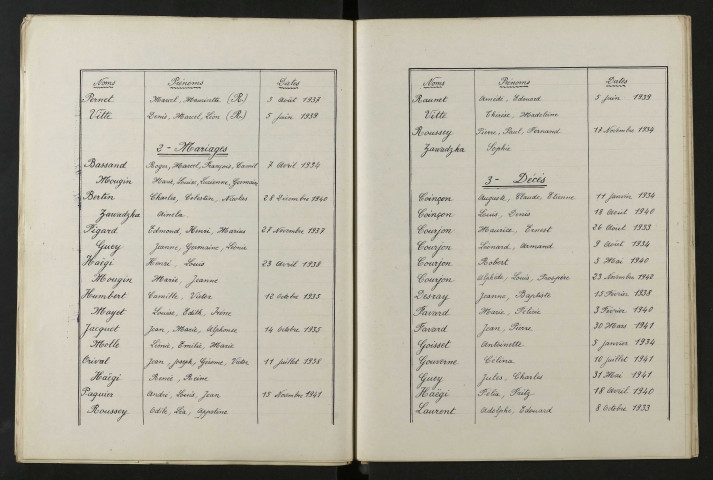 Noms Prénoms Dates
Pernet Marcel, Mauricette (R) 3 Août 1937
Vitte Denis, Marcel, Léon (R) 5 Juin 1939
2 - Mariages
Bassand Roger, Marcel, François, Camil 7 Avril 1934
Mougin Marie, Louise, Lucienne, Germaine
Bertin Charles, Célestin, Nicolas 28 Décembre 1940
Zawadzka Aniela
Pégard Edmond, Henri, Marius 27 Novembre 1937
Guey Jeanne, Germaine, Léonie
Haëgi Henri, Louis 23 Avril 1938
Mougin Marie, Jeanne
Humbert Camille, Victor 12 Octobre 1935
Mayet Louise, Edith, Irène
Jacquet Jean, Marie, Alphonse 14 Octobre 1935
Melle Emilie, Marie
Orival Jean, Joseph, Gérome, Victor 11 Juillet 1938
Haëgi Renée
Paquier André, Louis, Jean 15 Novembre 1941
Roussey Odile, Léa
Noms Prénoms Dates
Raunet Amédé, Edouard 5 Juin 1939
Vitte Thérèse, Madeleine
Roussey Pierre, Paul, Fernand 17 Novembre 1934
Zawadzka Sophie
3 - Décès
Coinçon Auguste, Claude, Etienne 11 Janvier 1934
Coinçon Louis, Denis 18 Avril 1940
Courjon Maurice, Ernest 26 Août 1933
Courjon Léonard, Armand 9 Août 1934
Courjon Robert 3 Mai 1940
Courjon Alphide, Louis, Prospère 23 Novembre 1940
Desray Jeanne, Baptiste 15 Février 1938
Favard Marie, Félicie 3 Février 1940
Favard Jean, Pierre 30 Mars 1941
Goisset Antoinette 5 Janvier 1934
Gouverne Célina 10 Juillet 1941
Guey Jules, Charles 31 Mai 1941
Haëgi Félix, Fritz 18 Avril 1940
Laurent Adolphe, Edouard 8 Octobre 1933